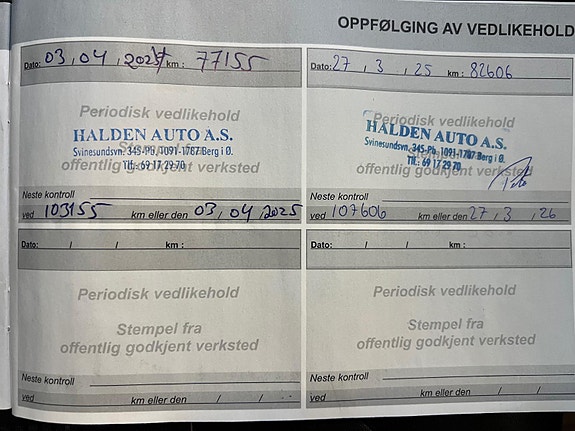 OPPFØLGING AV VEDLIKEHOLD
Dato: 03, 04, km: 77155
Periodisk vedlikehold
HALDEN AUTO A.S.
Svinesundsvn. 345-Pb. 1091-1787 Berg i Ø.
Tlf.: 69 17 29 70
offentlig godkjent verksted
Neste kontroll
ved 103155 km eller den 03, 04, 2025
Dato: 27, 3, 25 km: 82606
Periodisk vedlikehold
HALDEN AUTO A.S.
Svinesundsvn. 345-Pb. 1091-1787 Berg i Ø.
Tlf.: 69 17 29 70
offentlig godkjent verksted
Neste kontroll
ved 107606 km eller den 27, 3, 26
Dato: / / km:
Periodisk vedlikehold
Stempel fra
offentlig godkjent verksted
Neste kontroll
ved km eller den / /
Dato: / / km:
Periodisk vedlikehold
Stempel fra
offentlig godkjent verksted
Neste kontroll
ved km eller den / /